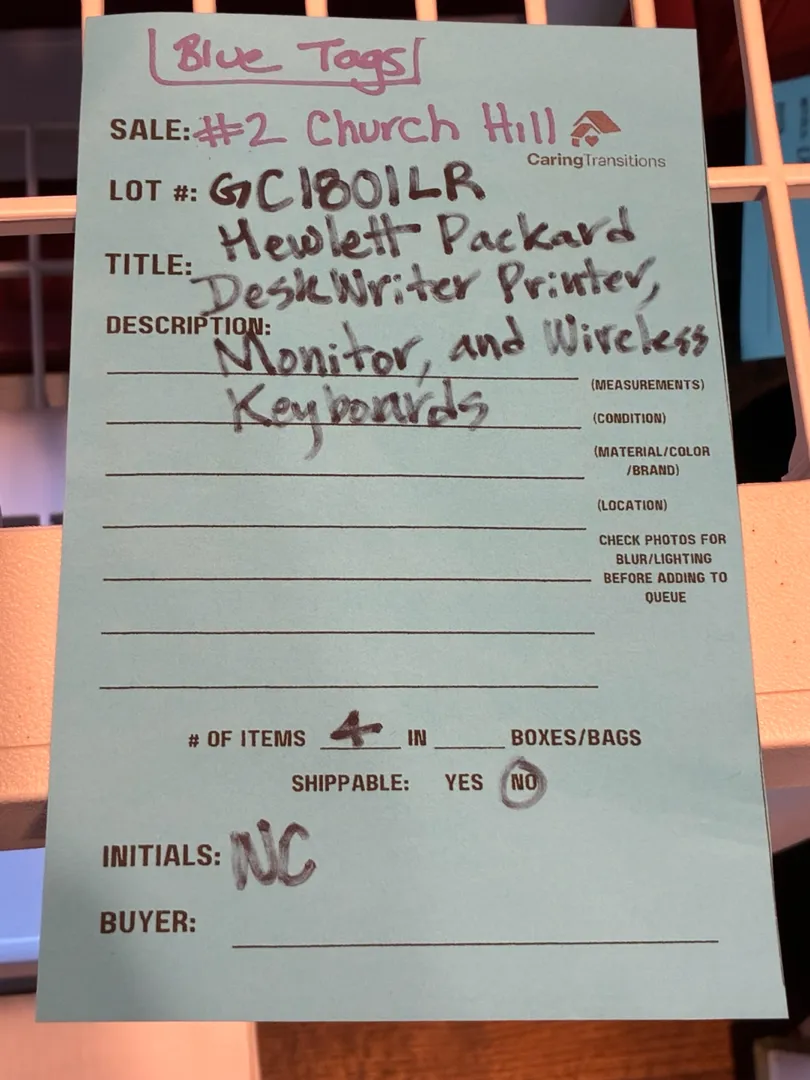 Blue Tags
SALE: #2 Church Hill
CaringTransitions
LOT #: GC1801LR
TITLE: Hewlett Packard
DeskWriter Printer,
DESCRIPTION:
Monitor, and Wireless
Keyboards
(MEASUREMENTS)
(CONDITION)
(MATERIAL/COLOR
/BRAND)
(LOCATION)
CHECK PHOTOS FOR
BLUR/LIGHTING
BEFORE ADDING TO
QUEUE
# OF ITEMS 4 IN ____ BOXES/BAGS
SHIPPABLE: YES NO
INITIALS: NC
BUYER: